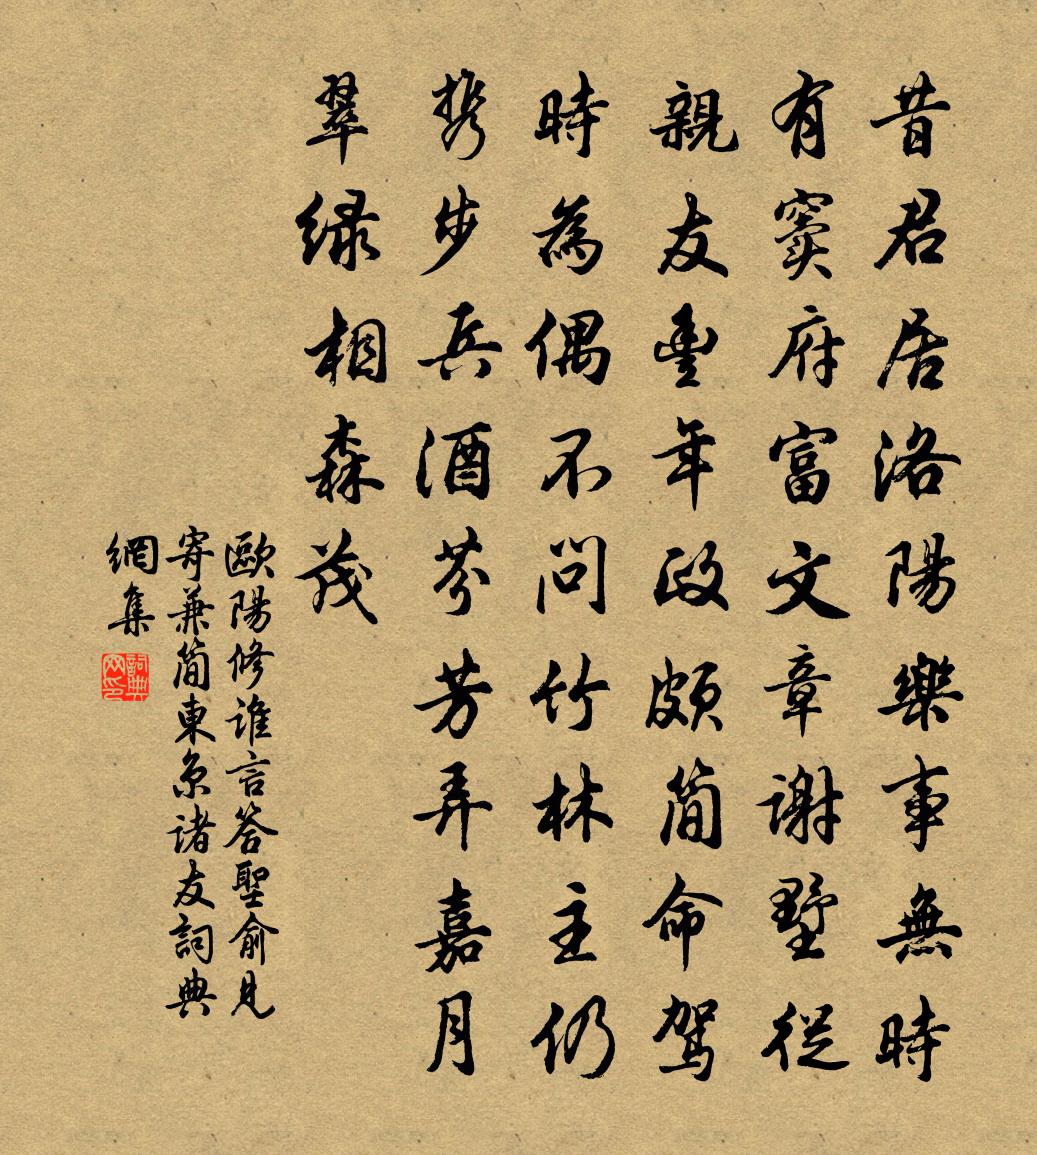 昔君居洛陽樂事無時
有竇府富文章謝墅從
親友豐年政頗簡命駕
時為偶不問竹林主仍
携步兵酒芬芳弄嘉月
翠绿相森茂
歐陽修誰言答聖俞見
寄兼簡東京諸友詞典
網集
詞典
网印